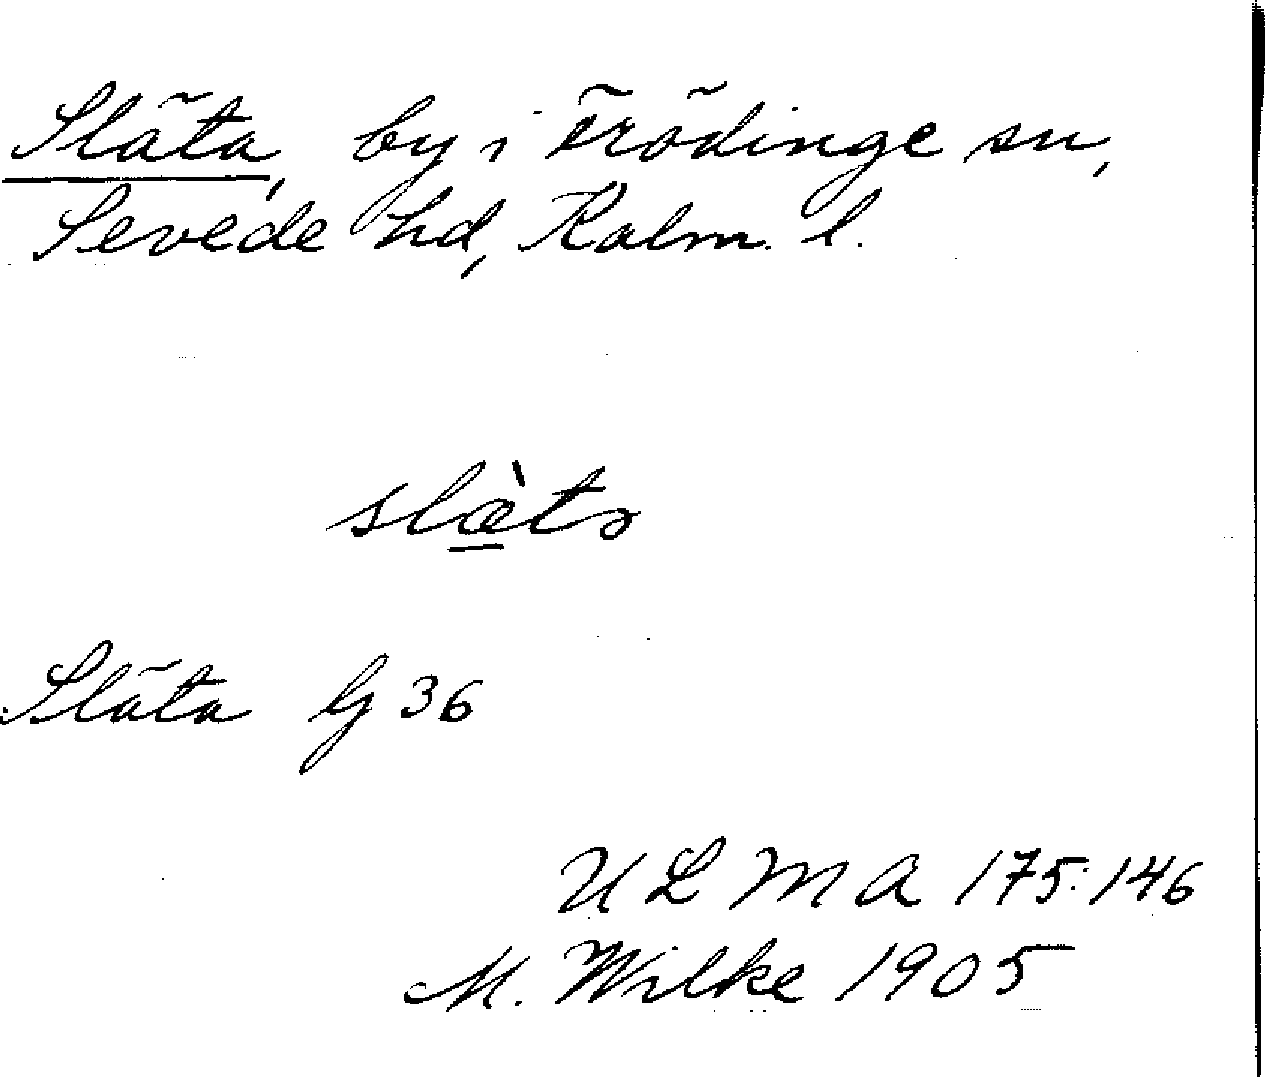 Släta, by i Frödinge sn,
Sevede hd, Kalm. l.
slæ̀tα
Släta G 36
ULMA 175:146
M. Wilke 1905